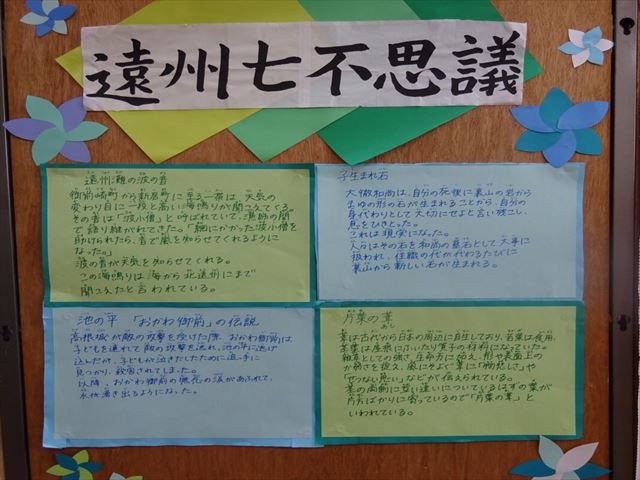 遠州七不思議
遠州灘の波の音
御前崎町から新居町に至る一帯は、天気の
変わり目に一段と高い海鳴りが聞こえてくる。
その音は「波小僧」と呼ばれていて、漁師の間
で語り継がれてきた。「網にかかった波小僧を
助けられたら、音で嵐を知らせてくれるように
なった。」
波の音が天気を知らせてくれる。
この海鳴りは海から北遠州にまで
聞こえたと言われている。
子生まれ石
大徹和尚は、自分の死後に裏山の岩から
まゆの形の石が生まれることから、自分の
身代わりとして大切にせよと言い残こし、
息をひきとった。
これは現実になった。
人々はその石を和尚の墓石として大事に
扱われ、住職の代が代わるたびに
裏山から新しい石が生まれる。
池の平 「おかわ御前」の伝説
高根城が敵の攻撃を受けた際、おかわ御前は
子どもを連れて敵の攻撃を逃れ、池の平に逃げ
込んだが、子どもが泣きだしたために追っ手に
見つかり、殺害されてしまった。
以降、おかわ御前の無念の涙があふれて、
水が湧き出るようになった。
片葉の葦
あし
葦は古代から日本の周辺に自生しており、若葉は食用、
茎葉は屋根にふいたり簀子の材料になっていた。
雑草としての強さ、生命力に加え、
か弱さを捉え、風にそよぐ葦に「物悲しさ」や
「せつない思い」などが伝えられている。
茎の両側に互い違いについているはずの葉が
片方ばかりに寄っているので「片葉の葦」と
いわれている。